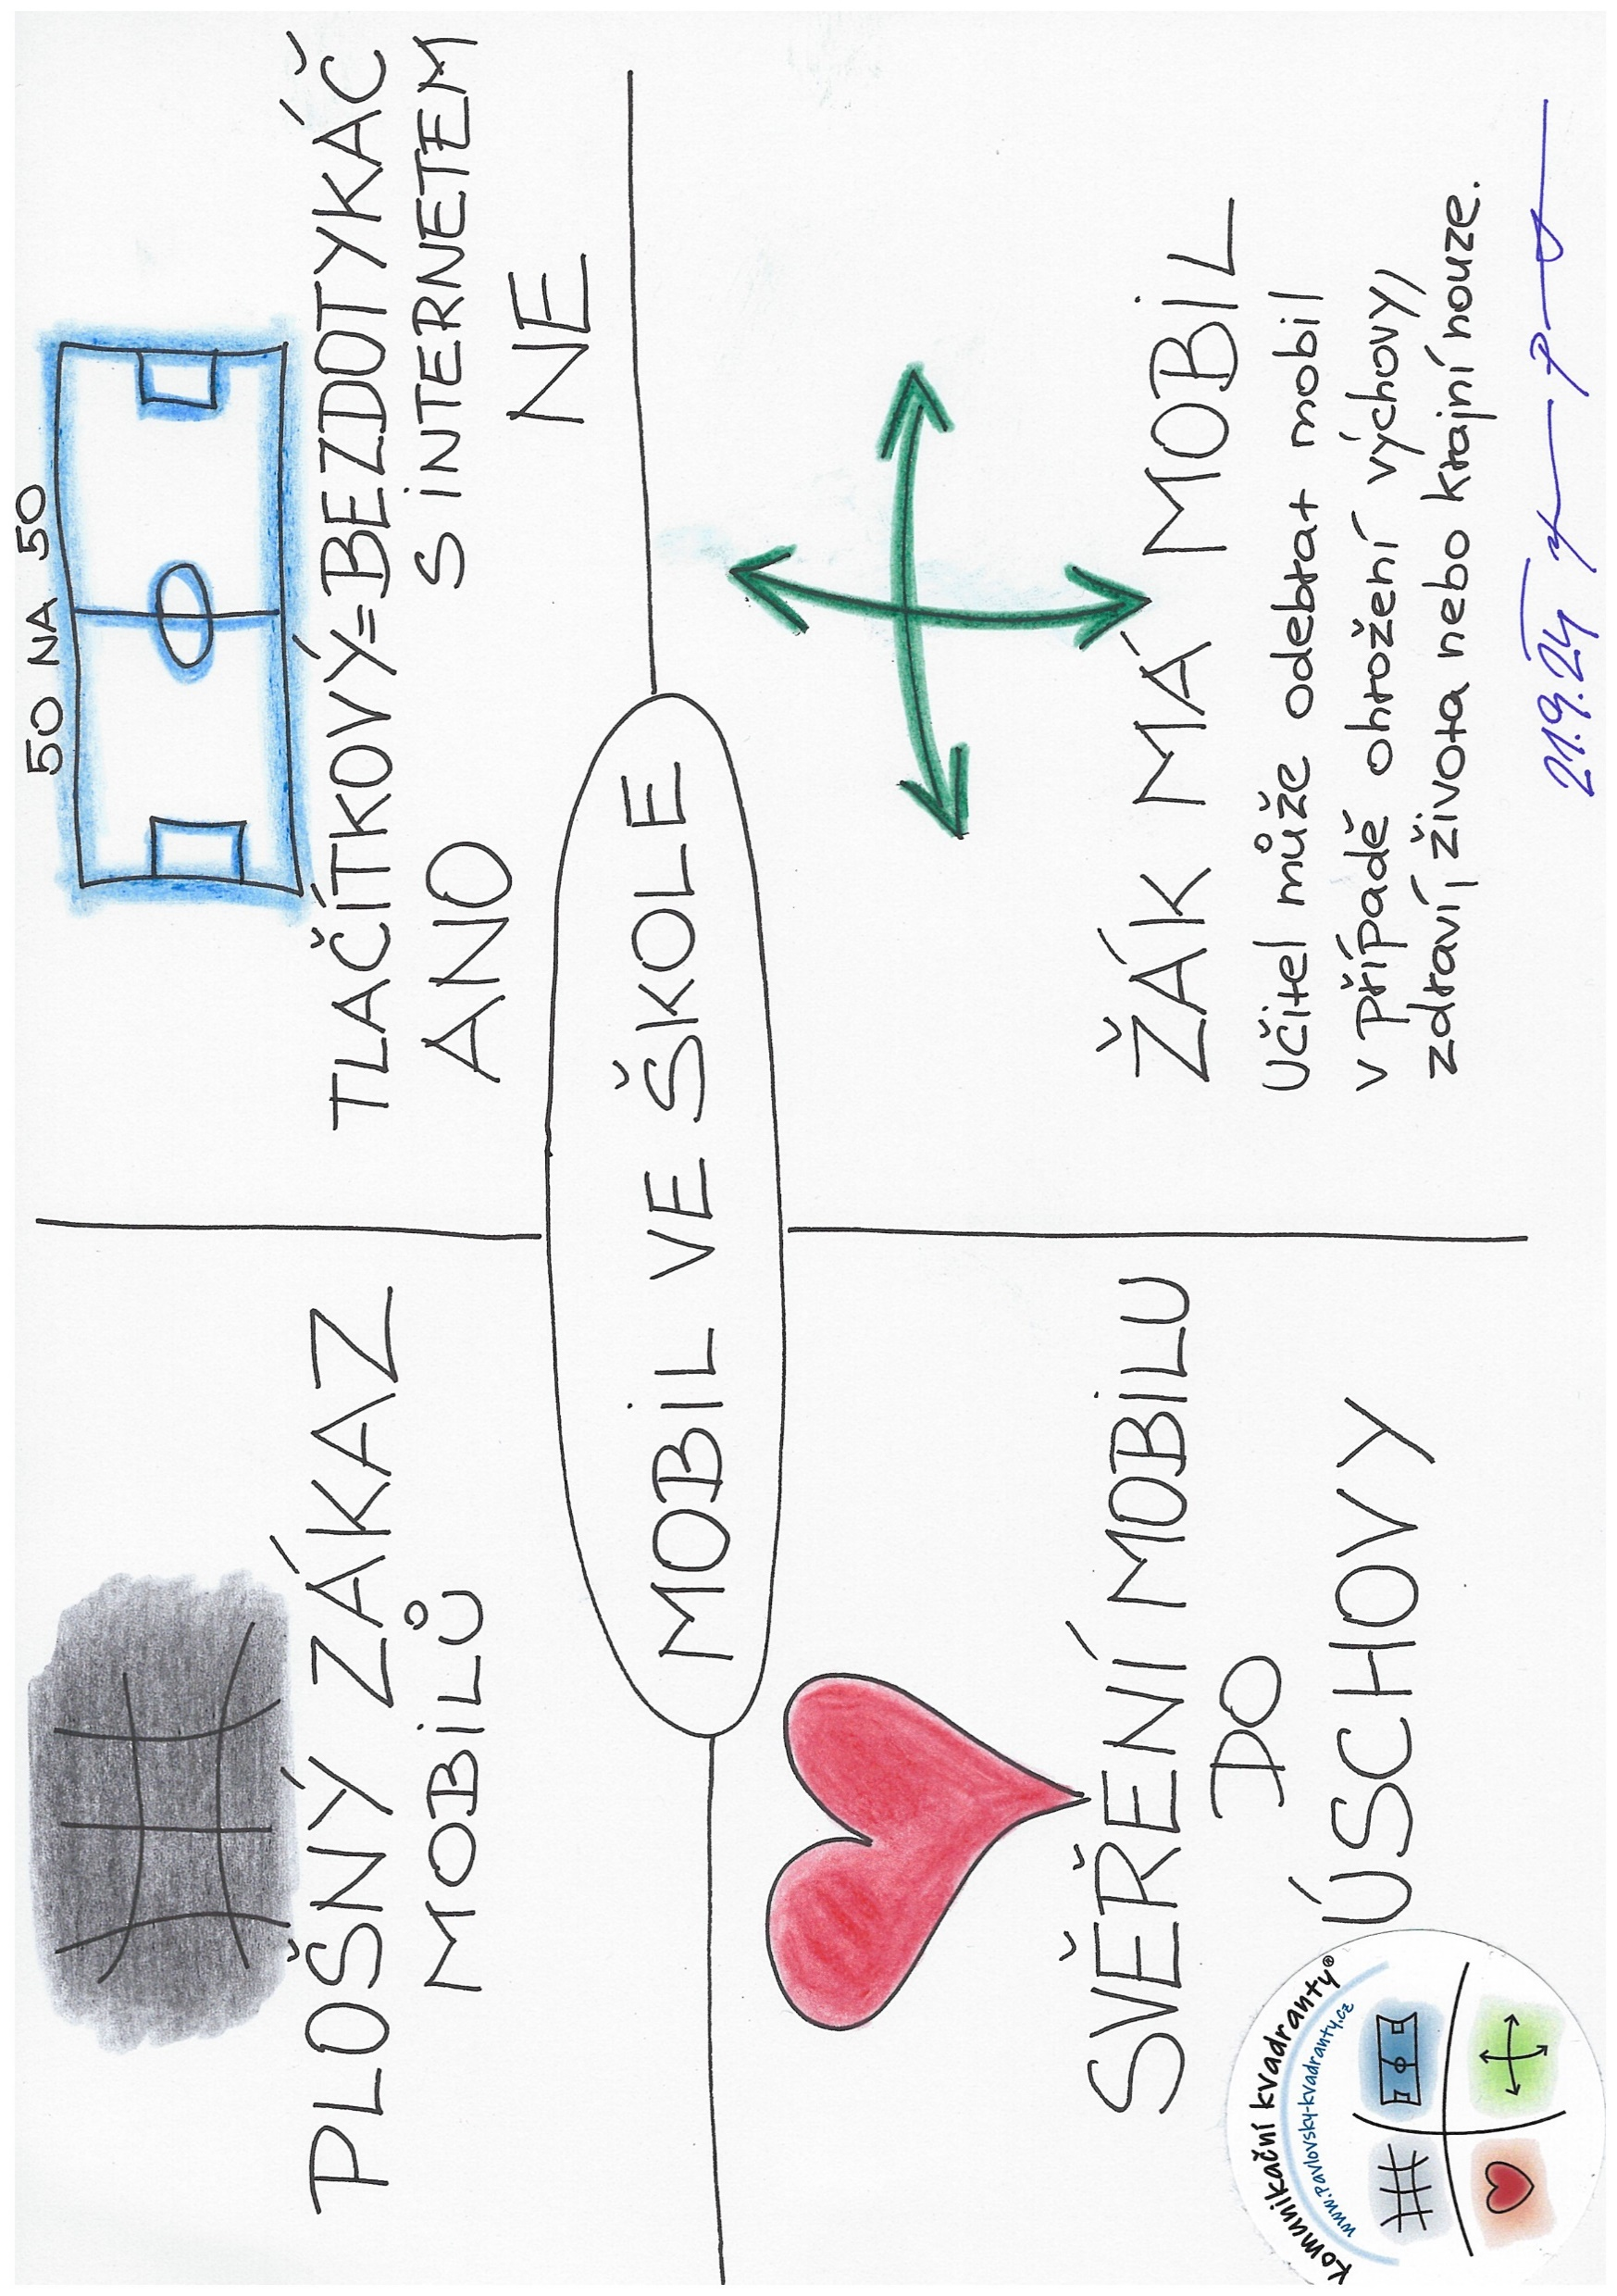 PLOŠNÝ ZÁKAZ
MOBILŮ
50 NA 50
TLAČÍTKOVÝ=BEZDOTYKÁČ
S INTERNETEM
ANO
NE
MOBIL VE ŠKOLE
SVĚŘENÍ MOBILU
DO
ÚSCHOVY
ŽÁK MÁ MOBIL
Učitel může odebrat mobil
v případě ohrožení výchovy,
zdraví, života nebo krajní nouze.
21.9.24
Komunikační kvadranty®
www.pavlovsky-kvadranty.cz